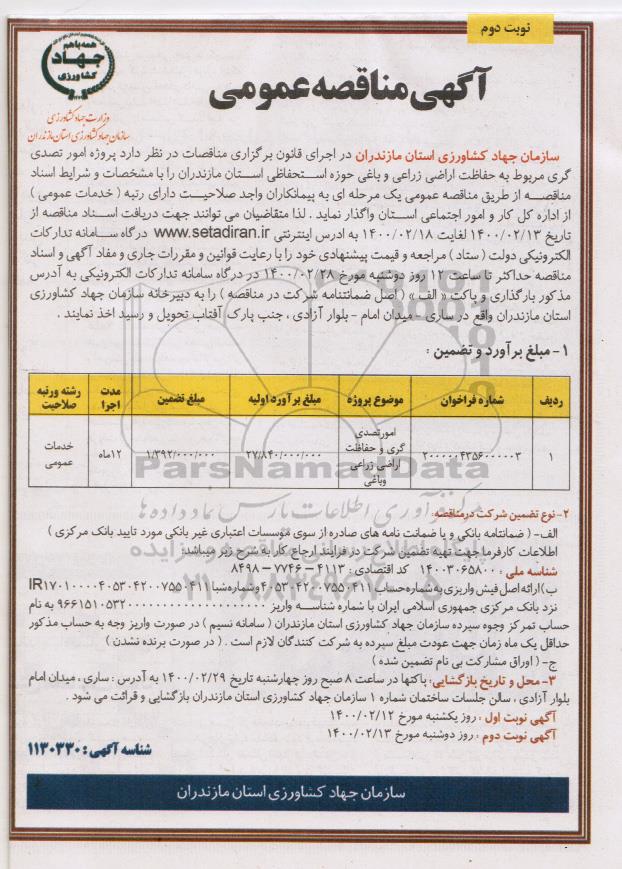 نوبت دوم
همه با هم
جهاد
کشاورزی
وزارت جهاد کشاورزی
سازمان جهاد کشاورزی استان مازندران
آگهی مناقصه عمومی
سازمان جهاد کشاورزی استان مازندران در اجرای قانون برگزاری مناقصات در نظر دارد پروژه امور تصدی
گری مربوط به حفاظت اراضی زراعی و باغی حوزه استحفاظی استان مازندران را با مشخصات و شرایط اسناد
مناقصه از طریق مناقصه عمومی یک مرحله ای به پیمانکاران واجد صلاحیت دارای رتبه ( خدمات عمومی )
از اداره کل کار و امور اجتماعی استان واگذار نماید . لذا متقاضیان می توانند جهت دریافت اسناد مناقصه از
تاریخ ۱۴۰۰/۰۲/۱۳ لغایت ۱۴۰۰/۰۲/۱۸ به ادرس اینترنتی www.setadiran.ir درگاه سامانه تدارکات
الکترونیکی دولت ( ستاد ) مراجعه و قیمت پیشنهادی خود را با رعایت قوانین و مقررات جاری و مفاد آگهی و اسناد
مناقصه حداکثر تا ساعت ۱۲ روز دوشنبه مورخ ۱۴۰۰/۰۲/۲۸ در درگاه سامانه تدارکات الکترونیکی به آدرس
مذکور بارگذاری و پاکت « الف » ( اصل ضمانتنامه شرکت در مناقصه ) را به دبیرخانه سازمان جهاد کشاورزی
استان مازندران واقع در ساری - میدان امام - بلوار آزادی ، جنب پارک آفتاب تحویل و رسید اخذ نمایند .
۱- مبلغ برآورد و تضمین :
ردیف شماره فراخوان موضوع پروژه مبلغ برآورد اولیه مبلغ تضمین مدت اجرا رشته ورتبه صلاحیت
۱ ۲۰۰۰۰۰۴۳۵۶۰۰۰۰۰۳ امورتصدی گری و حفاظت اراضی زراعی وباغی ۲۷/۸۴۰/۰۰۰/۰۰۰ ۱/۳۹۲/۰۰۰/۰۰۰ ۱۲ماه خدمات عمومی
ParsNamadData
۲- نوع تضمین شرکت درمناقصه:
الف- ( ضمانتنامه بانکی و یا ضمانت نامه های صادره از سوی موسسات اعتباری غیر بانکی مورد تایید بانک مرکزی )
اطلاعات کارفرما جهت تهیه تضمین شرکت در فرایند ارجاع کار به شرح زیر میباشد:
شناسه ملی : ۱۴۰۰۳۰۶۵۸۰۰ کد اقتصادی : ۴۱۱۳ - ۷۷۴۶ - ۸۴۹۸
ب) ارائه اصل فیش واریزی به شماره حساب ۴۰۵۳۰۴۲۰۰۷۵۵۰۴۱۱ و شماره شبا
نزد بانک مرکزی جمهوری اسلامی ایران با شماره شناسه واریز به نام
حساب تمرکز وجوه سپرده سازمان جهاد کشاورزی استان مازندران ( سامانه نسیم ) در صورت واریز وجه به حساب مذکور
حداقل یک ماه زمان جهت عودت مبلغ سپرده به شرکت کنندگان لازم است . ( در صورت برنده نشدن )
ج- ( اوراق مشارکت بی نام تضمین شده )
۳- محل و تاریخ بازگشایی: پاکتها در ساعت ۸ صبح روز چهارشنبه تاریخ ۱۴۰۰/۰۲/۲۹ به آدرس : ساری ، میدان امام
بلوار آزادی ، سالن جلسات ساختمان شماره ۱ سازمان جهاد کشاورزی استان مازندران بازگشایی و قرائت می شود .
آگهی نوبت اول : روز یکشنبه مورخ ۱۴۰۰/۰۲/۱۲
آگهی نوبت دوم : روز دوشنبه مورخ ۱۴۰۰/۰۲/۱۳
شناسه آگهی : ۱۱۳۰۳۳۰
سازمان جهاد کشاورزی استان مازندران